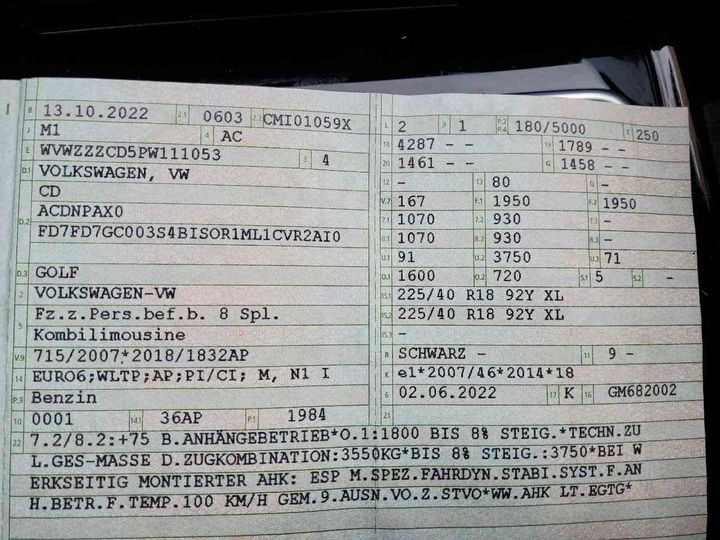 B 13.10.2022 2.1 0603 2.2 CMI01059X
J M1 4 AC
E WVWZZZCD5PW111053 3 4
D.1 VOLKSWAGEN, VW
CD
D.2 ACDNPAX0
FD7FD7GC003S4BISOR1ML1CVR2AI0
D.3 GOLF
2 VOLKSWAGEN-VW
5 Fz.z.Pers.bef.b. 8 Spl.
Kombilimousine
V.9 715/2007*2018/1832AP
14 EURO6;WLTP;AP;PI/CI; M, N1 I
P.3 Benzin
10 0001 14.1 36AP P.1 1984
L 2 9 1 P.2 P.4 180/5000 T 250
18 4287 - - 19 1789 - -
20 1461 - - G 1458 - -
12 - 13 80 Q -
V.7 167 F.1 1950 F.2 1950
7.1 1070 7.2 930 7.3 -
8.1 1070 8.2 930 8.3 -
U.1 91 U.2 3750 U.3 71
O.1 1600 O.2 720 S.1 5 S.2 -
15.1 225/40 R18 92Y XL
15.2 225/40 R18 92Y XL
15.3 -
R SCHWARZ - 11 9 -
K e1*2007/46*2014*18
6 02.06.2022 17 K 16 GM682002
21
22 7.2/8.2:+75 B.ANHÄNGEBETRIEB*O.1:1800 BIS 8% STEIG.*TECHN.ZU
L.GES-MASSE D.ZUGKOMBINATION:3550KG*BIS 8% STEIG.:3750*BEI W
ERKSEITIG MONTIERTER AHK: ESP M.SPEZ.FAHRDYN.STABI.SYST.F.AN
H.BETR.F.TEMP.100 KM/H GEM.9.AUSN.VO.Z.STVO*WW.AHK LT.EGTG*